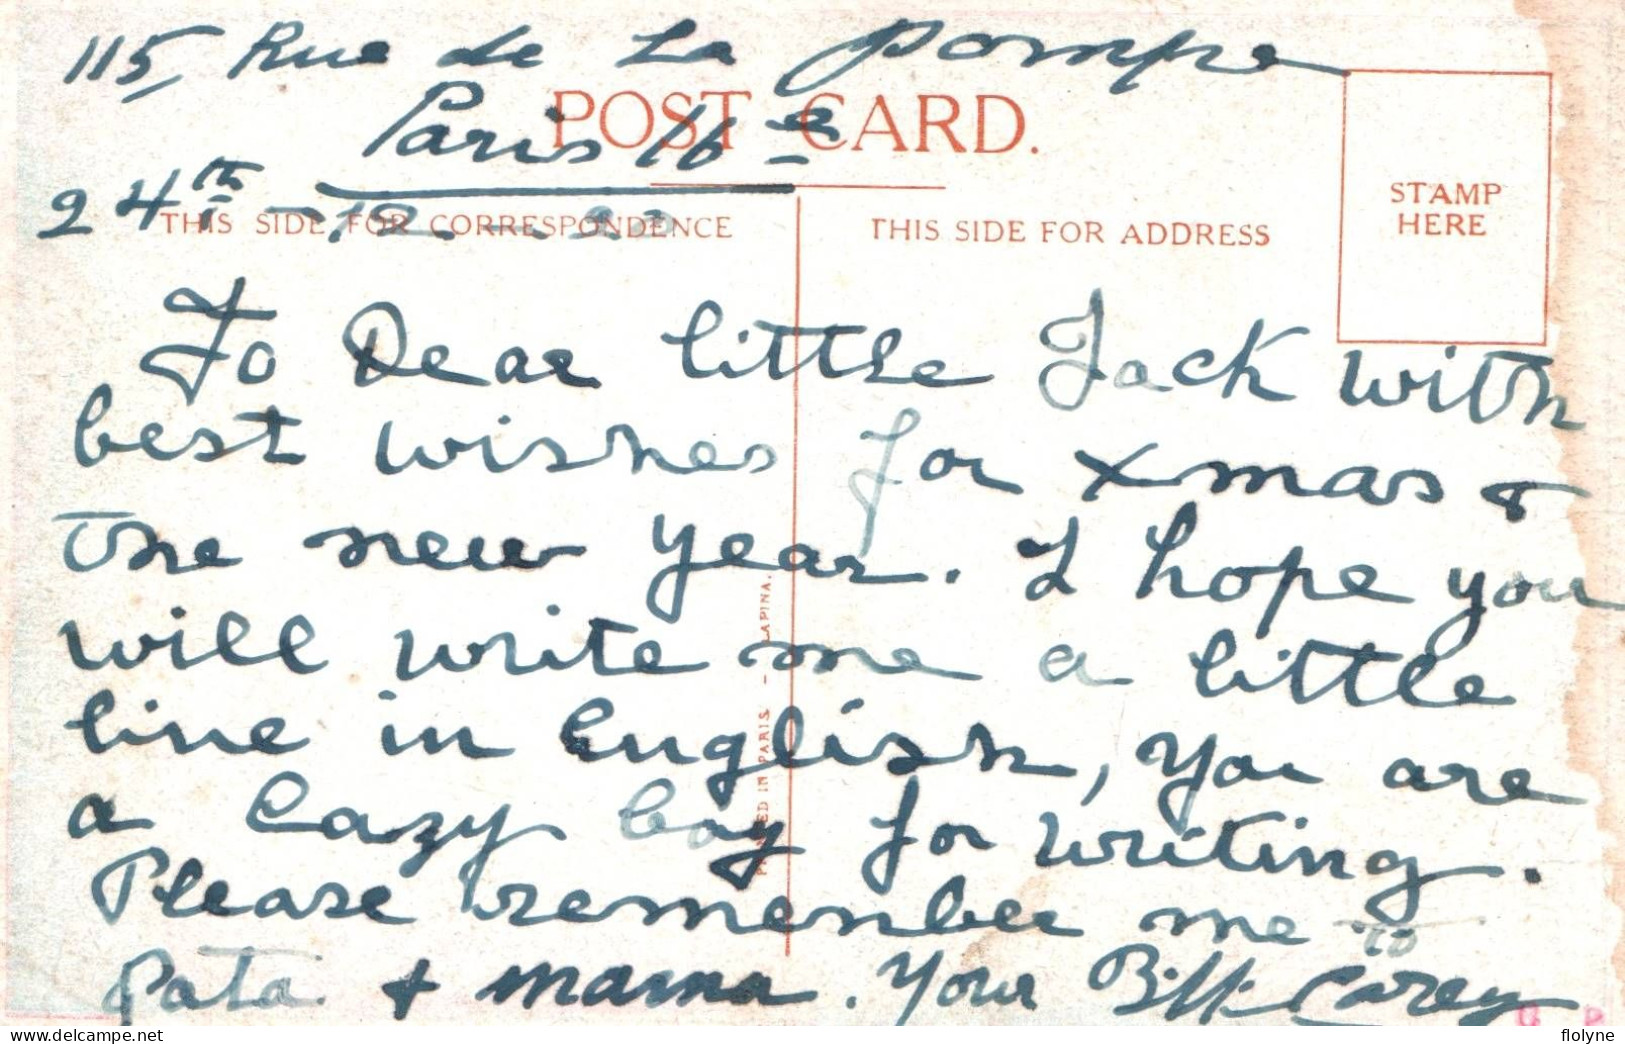 115, Rue de La Pompe
Paris 16e
POST CARD.
24th - 12 -
THIS SIDE FOR CORRESPONDENCE
THIS SIDE FOR ADDRESS
STAMP
HERE
To Dear little Jack with
best wishes for xmas &
the new year. I hope you
will write me a little
line in English, you are
a lazy boy for writing.
Please remember me to
Pata + mama. Your Carey
PRINTED IN PARIS. - LAPINA.
flolyne